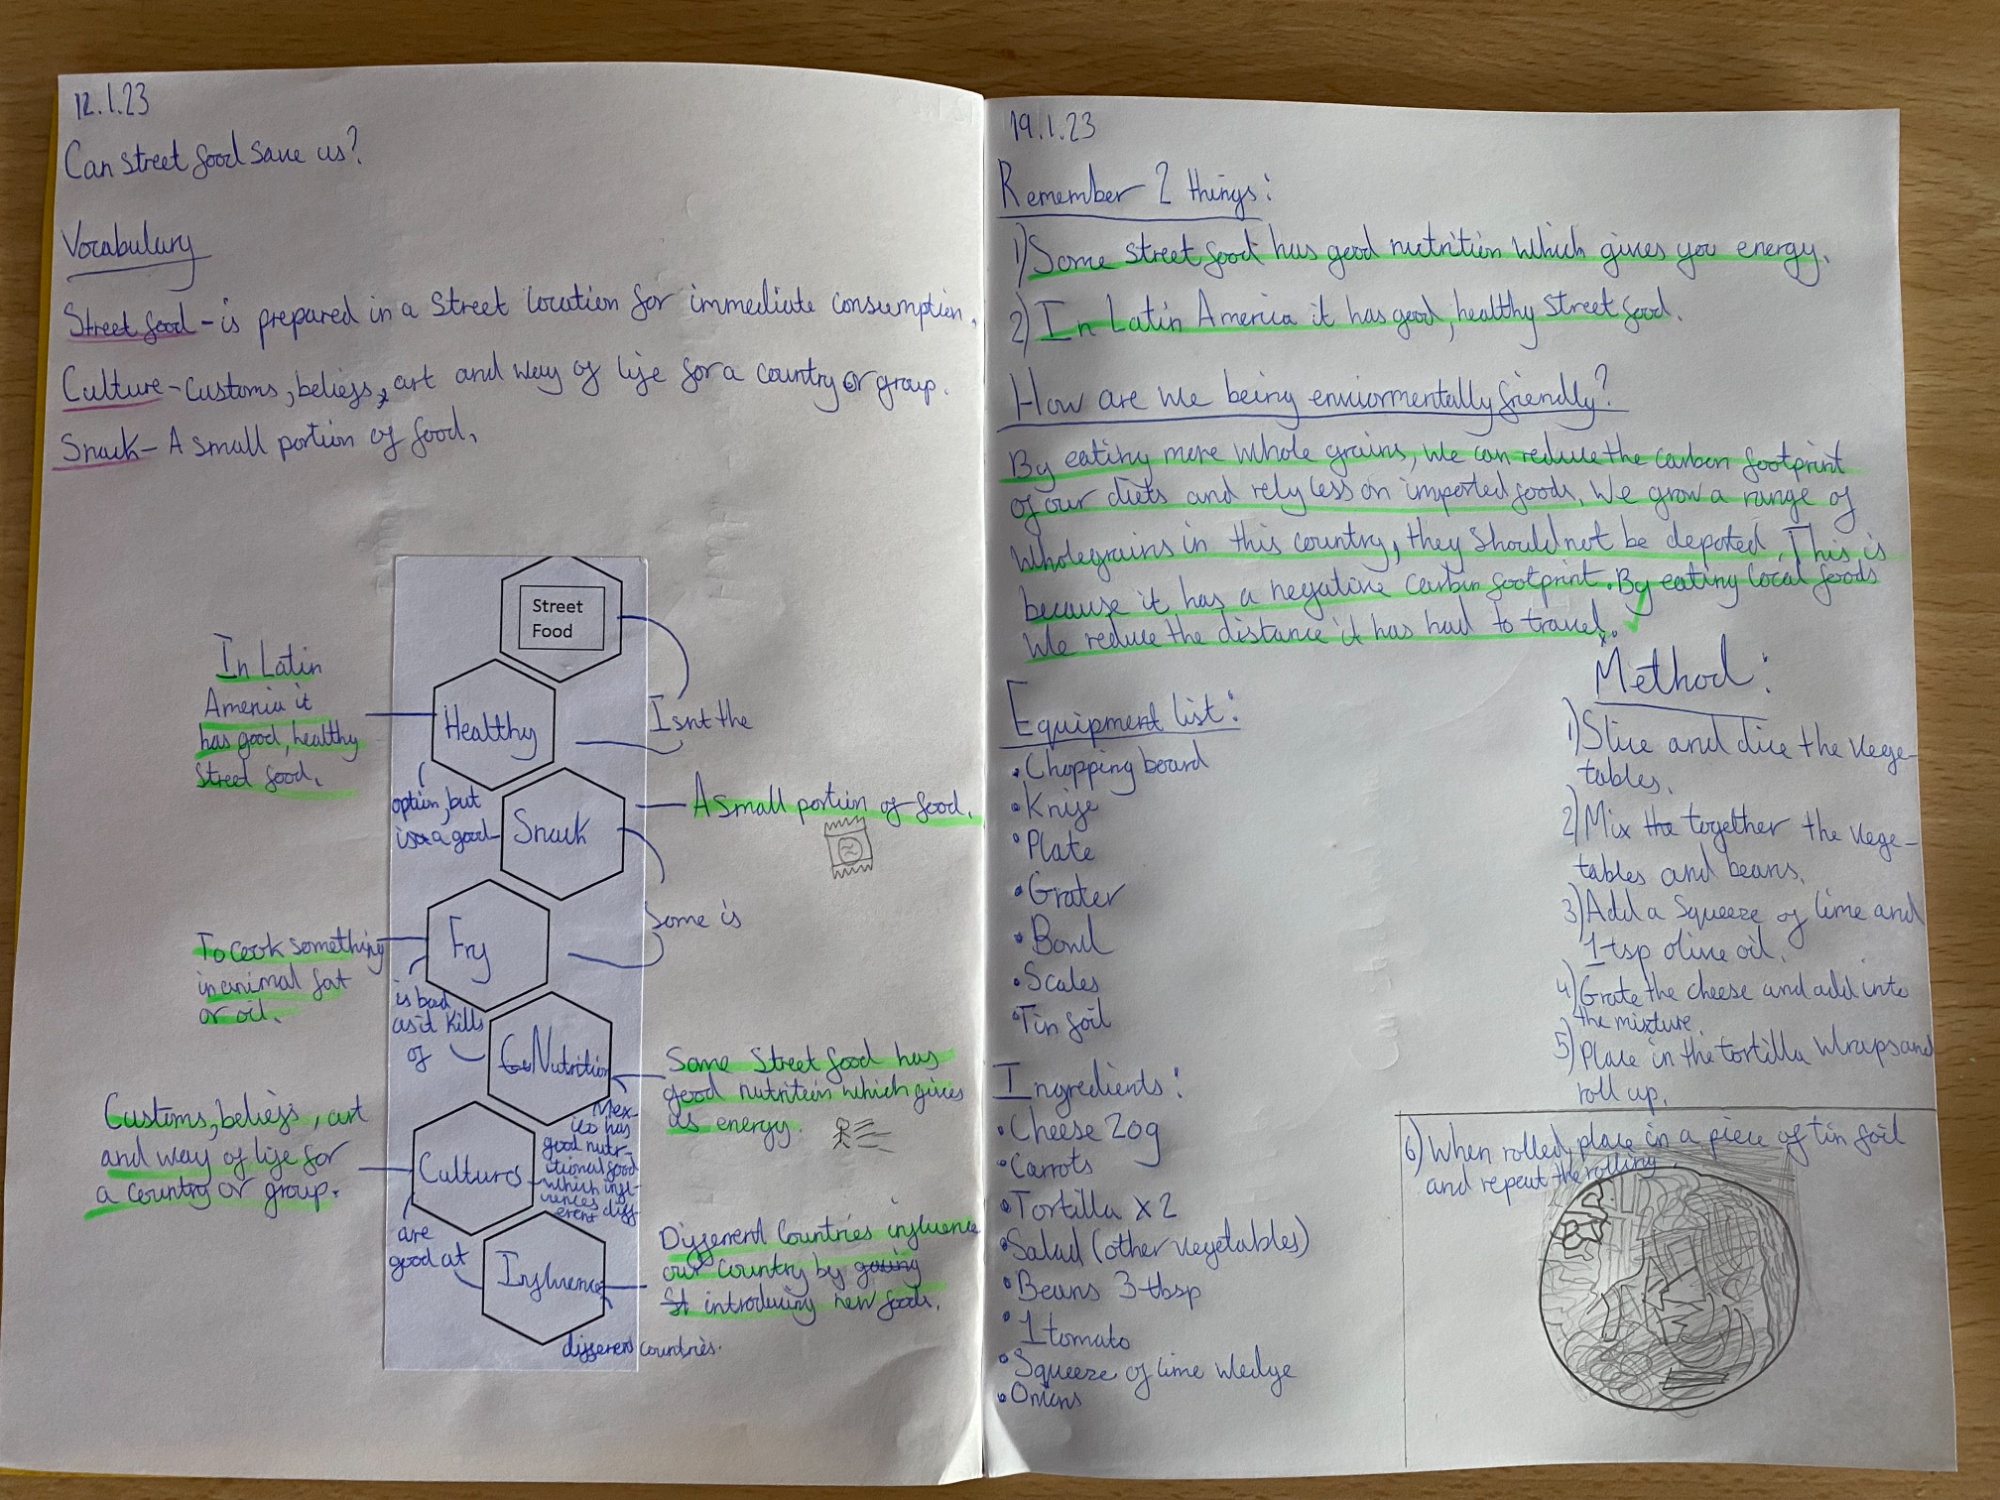 12.1.23
Can street food save us?
Vocabulary
Street food - is prepared in a street location for immediate consumption.
Culture - Customs, beliefs, art and way of life for a country or group.
Snack - A small portion of food.
Street
Food
Isnt the
Healthy
In Latin
America it
has good, healthy
street food.
option, but
is a good
Snack
A small portion of food.
Some is
Fry
To cook something
in animal fat
or oil.
is bad
as it kills
of
Nutrition
Some Street food has
good nutrition which gives
us energy.
Mex-
ico has
good nutr-
itional food
which infl-
uences diff
erent
Cultures
Customs, beliefs, art
and way of life for
a country or group.
are
good at
Influence
Different Countries influence
our country by going
St introducing new foods.
different countries.
19.1.23
Remember 2 things:
1) Some street food has good nutrition which gives you energy.
2) In Latin America it has good, healthy street food.
How are we being enviormentally friendly?
By eating more whole grains, we can reduce the carbon footprint
of our diets and rely less on imported foods. We grow a range of
wholegrains in this country, they should not be deported. This is
because it has a negative carbon footprint. By eating local foods
we reduce the distance it has had to travel.
Equipment list:
• Chopping board
• Knife
• Plate
• Grater
• Bowl
• Scales
• Tin foil
Ingredients:
• Cheese 20g
• Carrots
• Tortilla x2
• Salad (other vegetables)
• Beans 3 tbsp
• 1 tomato
• Squeeze of lime wedge
• Onions
Method:
1) Slice and dice the vege-
tables.
2) Mix the together the vege-
tables and beans.
3) Add a squeeze of lime and
1 tsp olive oil.
4) Grate the cheese and add into
the mixture.
5) Place in the tortilla wraps and
roll up.
6) When rolled, place in a piece of tin foil
and repeat the rolling.